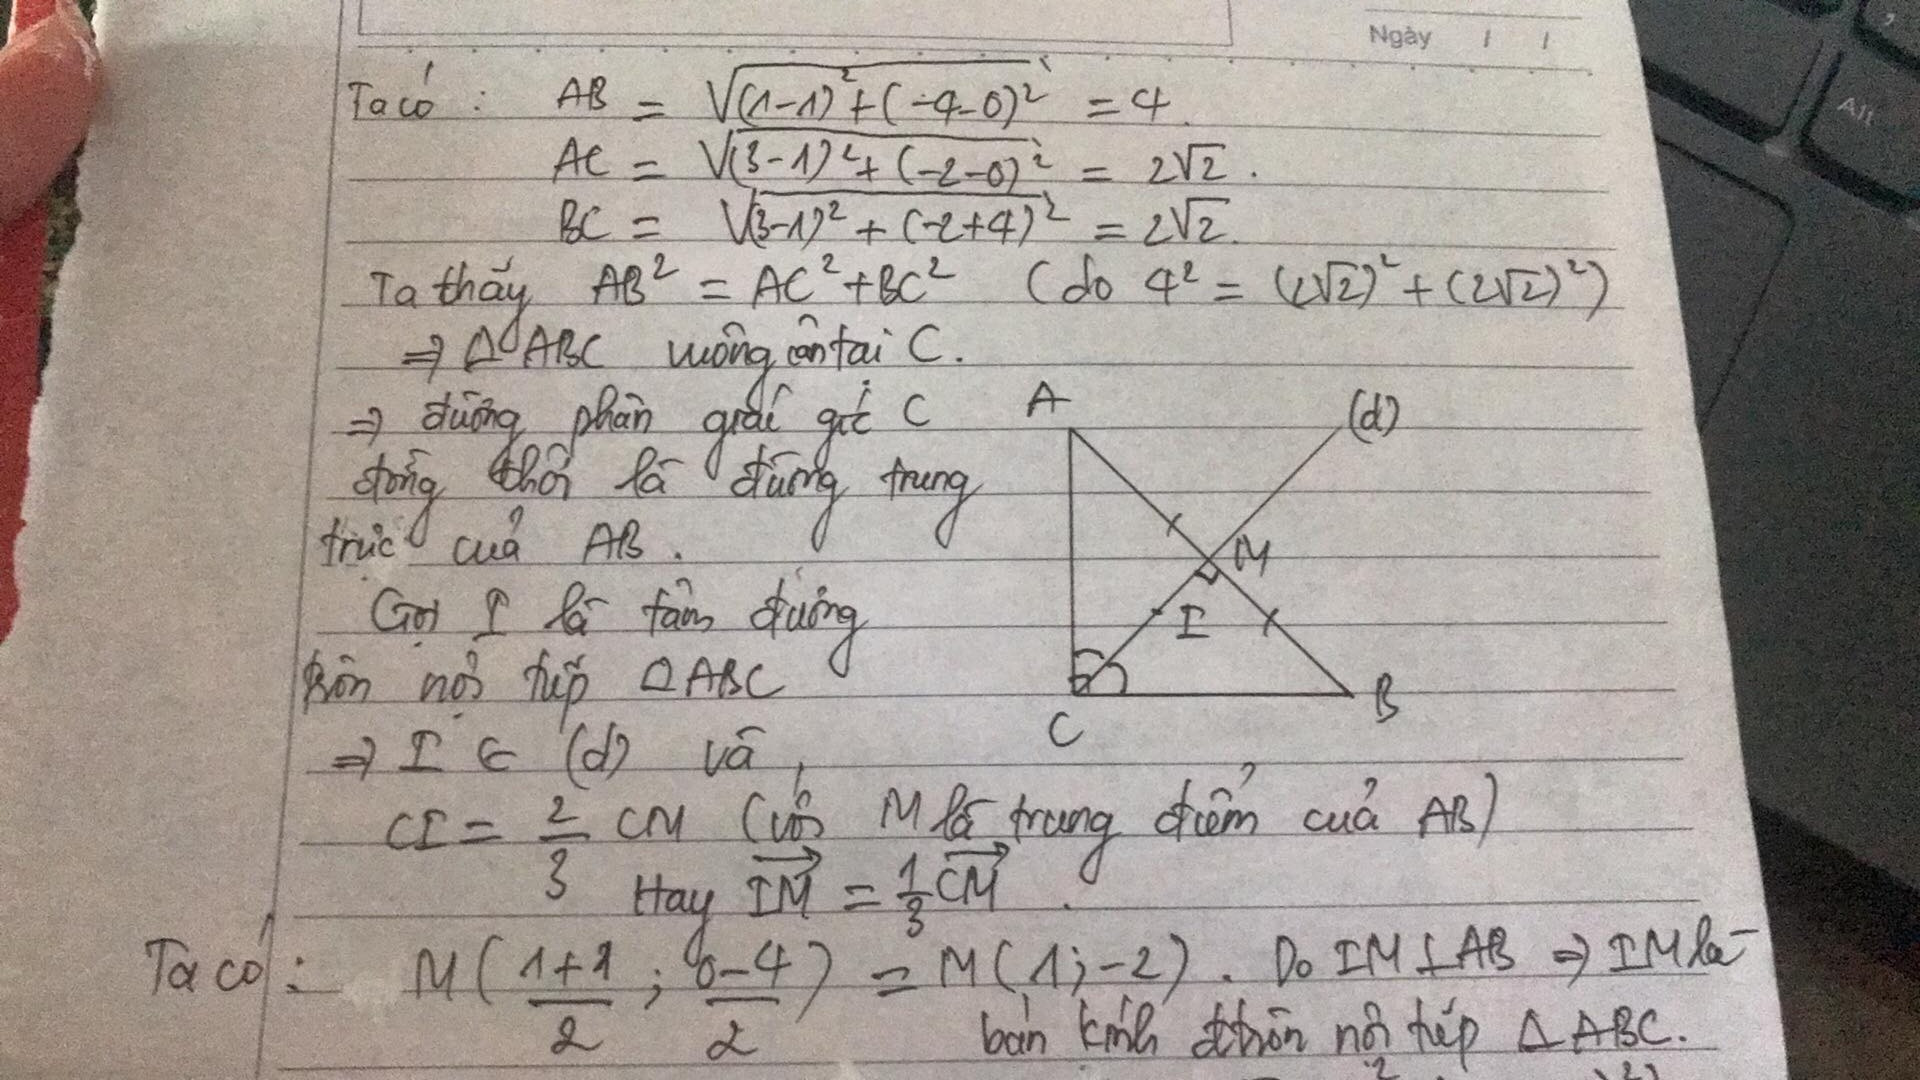 Ngày / /
Ta có : AB = √((1-1)² + (-4-0)²) = 4.
AC = √((3-1)² + (-2-0)²) = 2√2.
BC = √((3-1)² + (-2+4)²) = 2√2.
Ta thấy AB² = AC² + BC² (do 4² = (2√2)² + (2√2)²)
⇒ ΔABC vuông cân tại C.
⇒ đường phân giác góc C
đồng thời là đường trung
trực của AB.
A
(d)
M
I
C
B
Gọi I là tâm đường
tròn nội tiếp ΔABC
⇒ I ∈ (d) và
CI = 2/3 CM (với M là trung điểm của AB)
Hay IM→ = 1/3 CM→.
Ta có: M((1+1)/2 ; (0-4)/2) = M(1;-2). Do IM ⊥ AB ⇒ IM là
bán kính đtròn nội tiếp ΔABC.
Alt